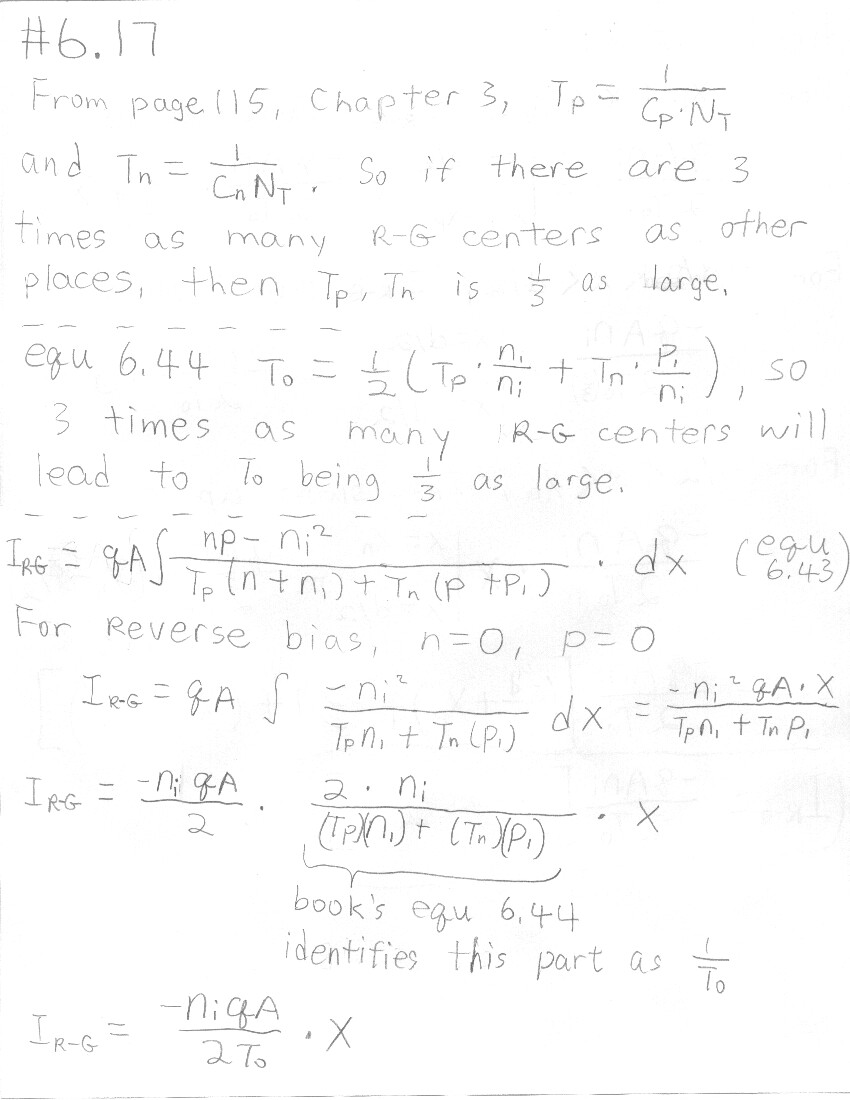 #6.17
From page 115, Chapter 3, Tp = 1/(Cp·NT)
and Tn = 1/(CnNT). So if there are 3
times as many R-G centers as other
places, then Tp, Tn is 1/3 as large.
equ 6.44 To = 1/2 (Tp · n1/ni + Tn · p1/ni), so
3 times as many R-G centers will
lead to To being 1/3 as large.
IRG = qA∫ (np - ni²)/(Tp(n+n1) + Tn(p+p1)) · dx (equ 6.43)
For Reverse bias, n=0, p=0
IR-G = qA ∫ -ni²/(Tpn1 + Tn(p1)) dx = -ni²qA·X/(Tpn1 + Tnp1)
IR-G = -niqA/2 · 2·ni/((Tp)(n1) + (Tn)(p1)) · X
book's equ 6.44
identifies this part as 1/To
IR-G = -niqA/2To · X